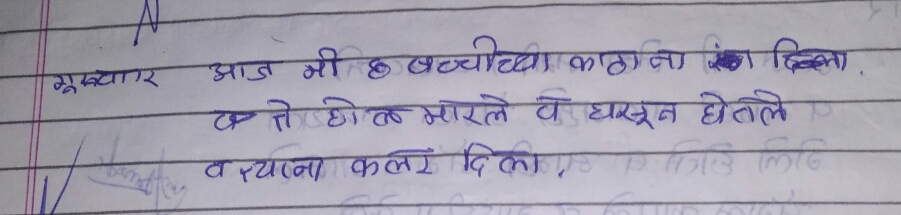 गुरूवार आज मी ६ बच्चीच्या काठाला रंग दिला.
ते होल मारले व घासून घेतले
व त्याला कलर दिला.